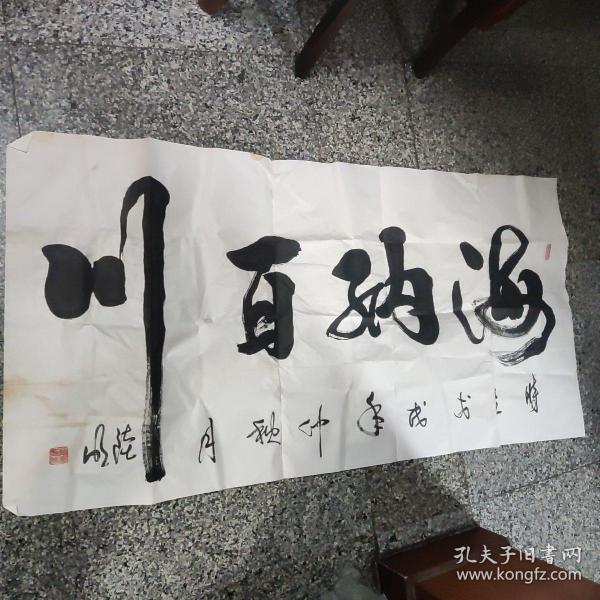 海纳百川
时在戊戌年仲秋月
孔夫子旧书网
www.kongfz.com